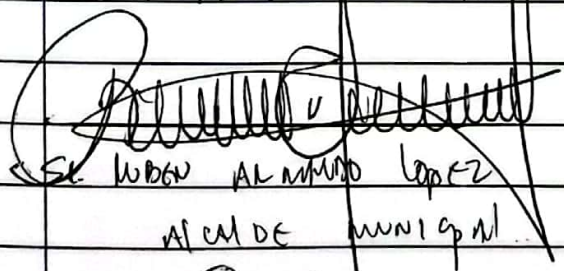 Sr. RUBEN ARMANDO LOPEZ
ALCALDE MUNICIPAL